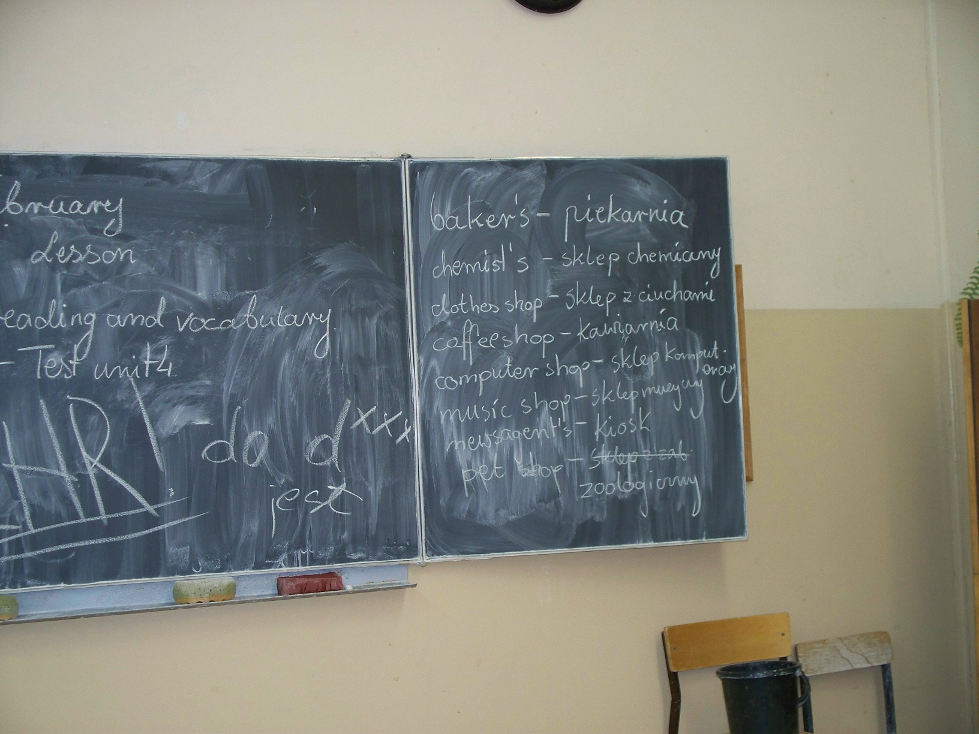 bruary
Lesson
eading and vocabulary.
- Test unit 4
do dxxx
jest
baker's - piekarnia
chemist's - sklep chemiczny
clothes shop - sklep z ciuchami
coffeeshop - kawiarnia
computer shop - sklep komput.
owy
music shop - sklep muzyczny
newsagent's - kiosk
pet shop - sklep z zał
zoologiczny